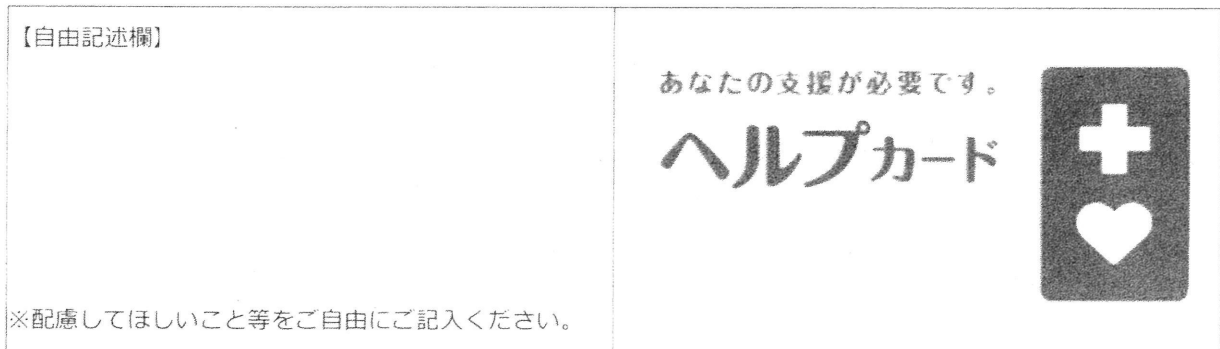 【自由記述欄】
※配慮してほしいこと等をご自由にご記入ください。
あなたの支援が必要です。
ヘルプカード